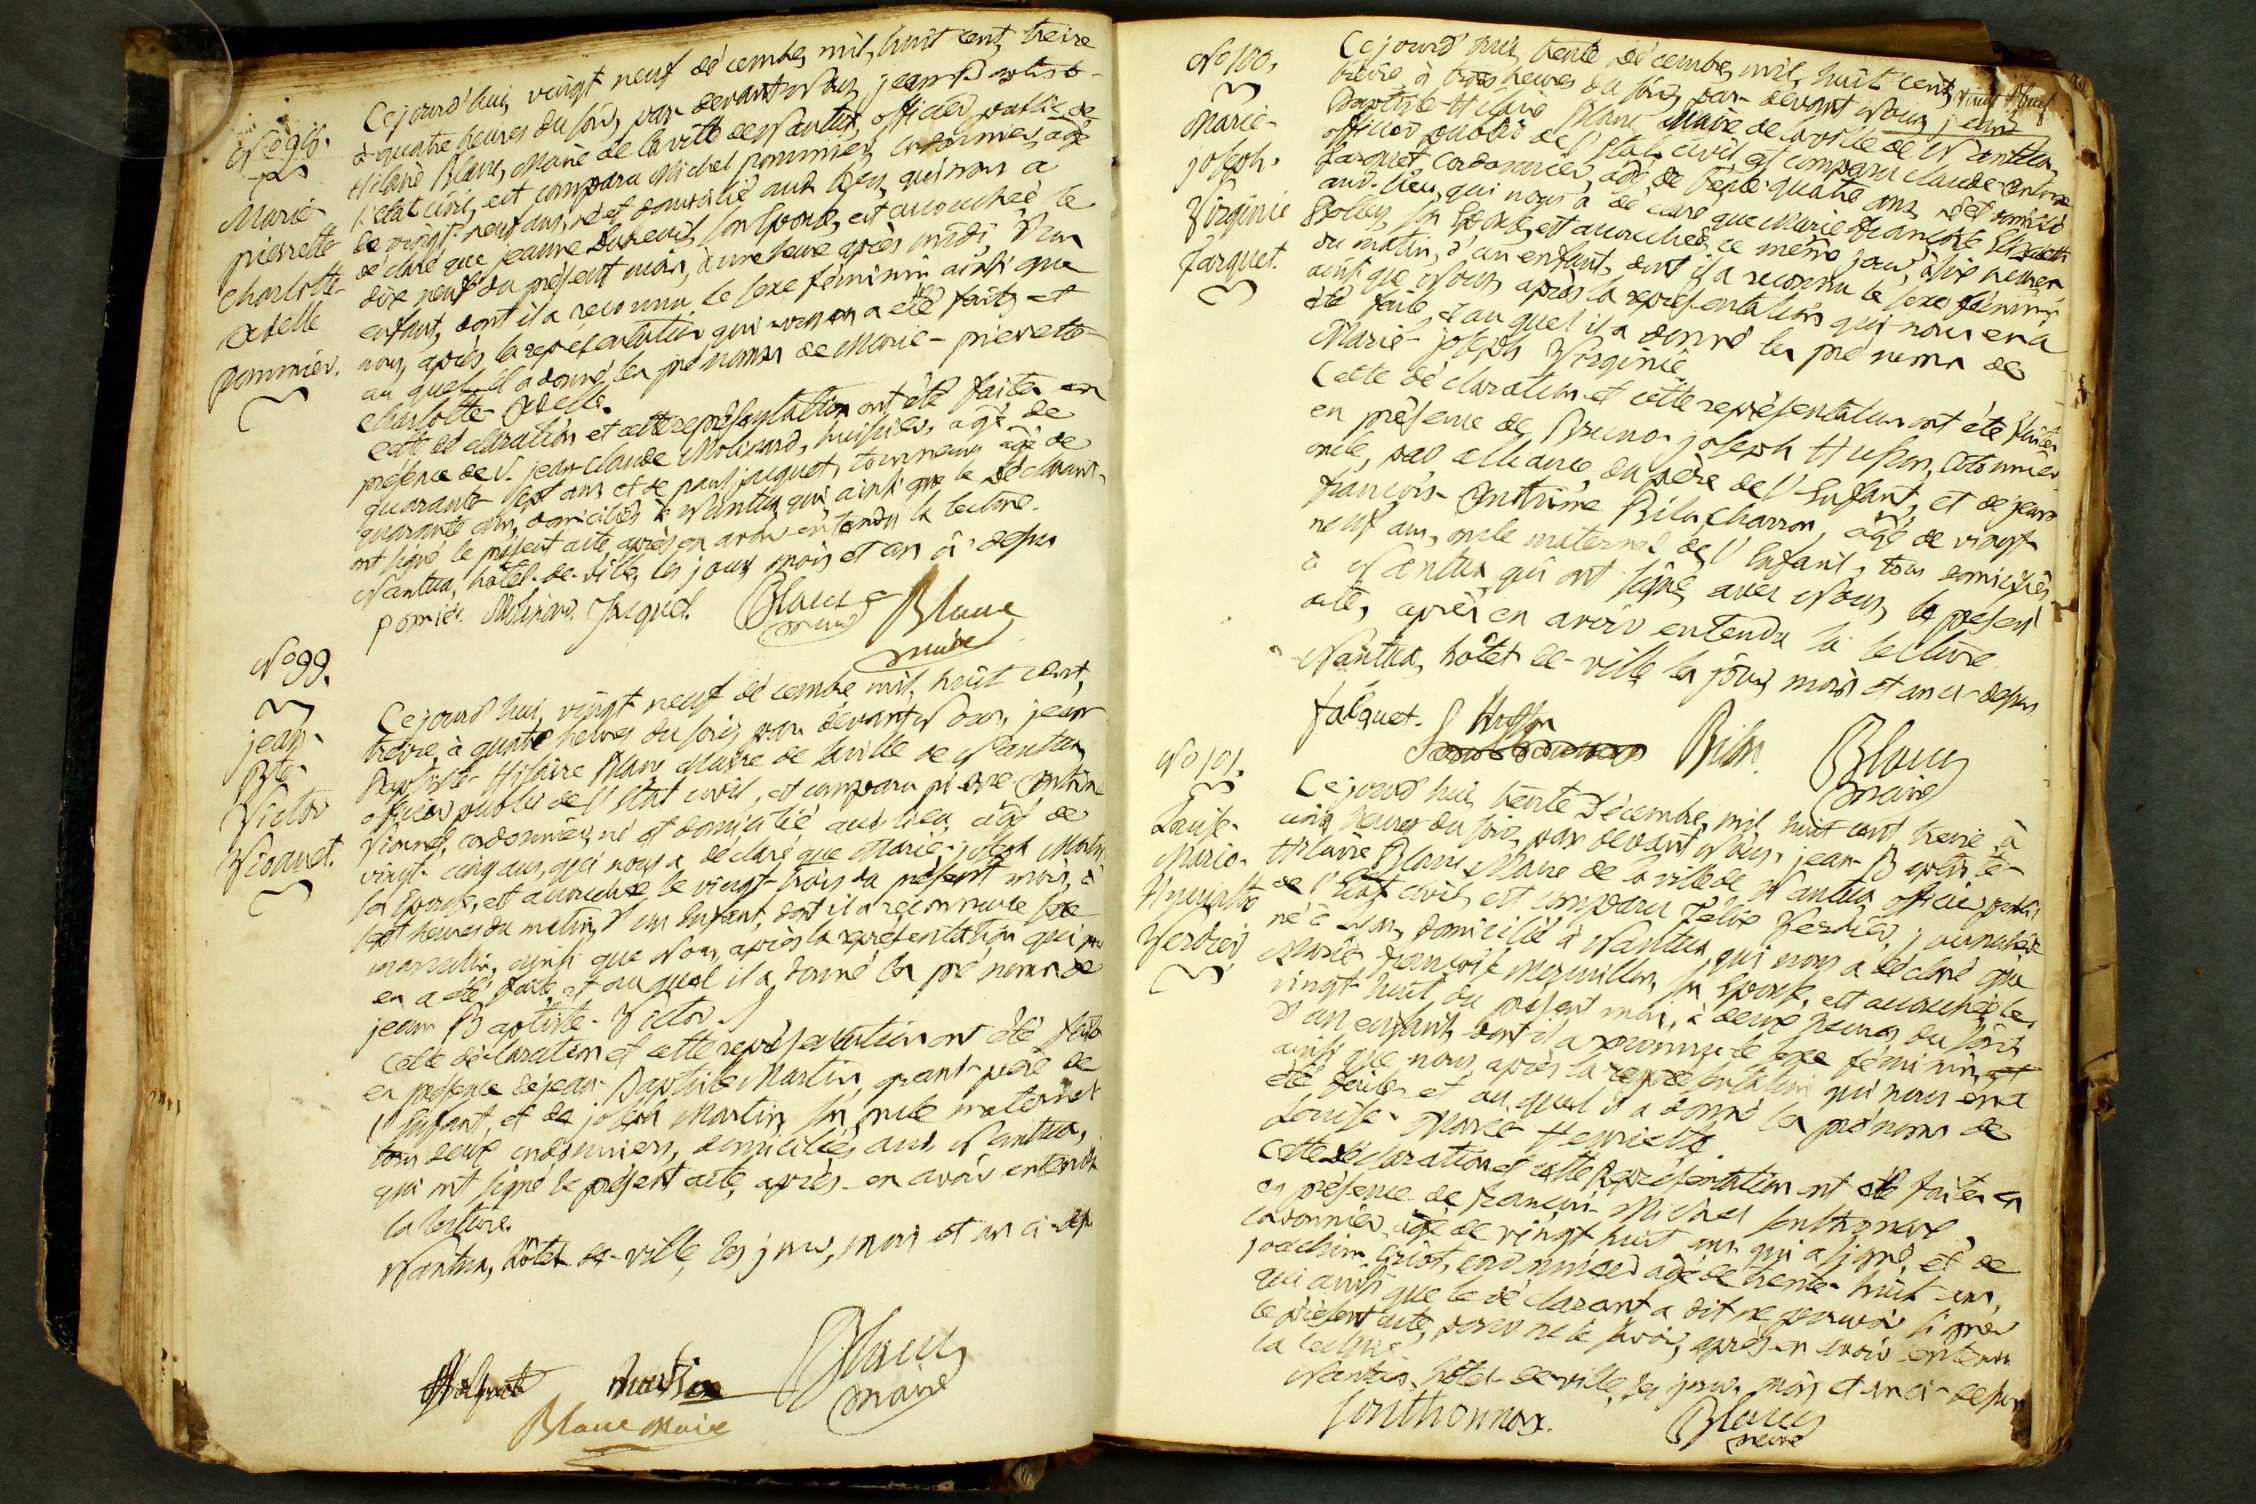 No 98.
Marie-
pierrette
Charlotte-
Adelle
pommier.
Cejourd'hui vingt neuf décembre, mil, huit cent, treize
à quatre heures du soir, par devant Nous jean Baptiste-
Hilaire Blanc, Maire de la ville de Nantua, officier public de
l'état civil, est comparu Michel pommier, âgé
de vingt-neuf ans, né et domicilié aud. lieu, qui nous a
déclaré que jeanne son épouse, est accouchée le
dix neuf du présent mois, à une heure après midi, d'un
enfant, dont il a reconnu le sexe féminin ainsi que
nous, après la représentation qui nous en a été faite, et
au quel il a donné les prénoms de Marie-pierrette-
Charlotte-Adelle.
Cette déclaration et cette représentation ont été faites en
présence de S. jean-Claude Molinard, huissier, âgé de
quarante-sept ans et de paul jacquet, tourneur âgé de
quarante ans, domiciliés à Nantua, qui, ainsi que le Déclarant-
ont signé le présent acte, après en avoir entendu la lecture.
Nantua, hôtel-de-ville, les jour, mois et an ci-dessus
pomier. Molinard. Jaquet. Blanc maire Blanc
maire
No 99.
jean-
Bte-
Victor
Vionnet.
Cejourd'hui, vingt neuf décembre mil, huit cent,
treize, à quatre heures du soir, par devant Nous, jean
Baptiste Hilaire Blanc Maire de la ville de Nantua,
officier public de l'état civil, est comparu pierre
Vionnet, cordonnier, né et domicilié aud. lieu, âgé de
vingt-cinq ans, qui nous a déclaré que Marie-joseph Martin
son épouse, est accouchée le vingt-trois du présent mois, à
sept heures du matin, d'un enfant, dont il a reconnu le sexe
masculin, ainsi que Nous, après la représentation qui nous
en a été faite, et au quel il a donné les prénoms de
jean Baptiste-Victor.
Cette déclaration et cette représentation ont été faites
en présence de jean-Baptiste Martin, grand-père de
l'enfant, et de joseph Martin, son oncle maternel
tous deux cordonniers, domiciliés aud. Nantua,
qui ont signé le présent acte, après en avoir entendu
la lecture.
Nantua, hôtel de-ville, les jour, mois et an ci-dessus
Martin Blanc
maire
Blanc Maire
No 100.
Marie-
joseph-
Virginie
Jarquet.
Cejourd'hui trente décembre, mil, huit cent
treize à trois heures du soir, par-devant Nous jean
Baptiste-Hilaire Blanc Maire de la ville de Nantua
officier public de l'état civil, est comparu Claude-Antoine
cordonnier, âgé de trente-quatre ans, né et domicilié
aud. lieu, qui nous a déclaré que Marie Françoise
son épouse, est accouchée ce même jour, à six heures
du matin, d'un enfant, dont il a reconnu le sexe féminin
ainsi que Nous, après la représentation qui nous en a
été faite, & au quel il a donné les prénoms de
Marie-joseph Virginie
Cette déclaration et cette représentation ont été faites
en présence de Bruno-joseph Husson,
oncle, par alliance, du père de l'Enfant, et de jean
françois-Anthelme charron, âgé de vingt
neuf ans, oncle maternel de l'Enfant, tous domiciliés
à Nantua, qui ont signé avec Nous, le présent
acte, après en avoir entendu la lecture
Nantua, hôtel de-ville les jour, mois et an ci-dessus
falquet. Husson Blanc
maire
No 101.
Louise-
Marie-
Henriette
Verdier
Cejourd'hui trente décembre, mil huit cent treize à
cinq heures du soir, par devant Nous, jean-Baptiste-
Hilaire Blanc Maire de la ville de Nantua officier public
de l'état civil, est comparu Félix Verdier, journalier
né à Lyon, domicilié à Nantua, qui nous a déclaré que
Marie Françoise Mermillon, son épouse, est accouchée le
vingt-huit du présent mois, à deux heures du soir,
d'un enfant dont il a reconnu le sexe féminin,
ainsi que nous, après la représentation qui nous en a
été faite, et au quel il a donné les prénoms de
Louise-Marie-Henriette.
Cette déclaration et cette Représentation ont été faites en
en présence de François-Michel Sonthonnax,
cordonnier, âgé de vingt huit ans, qui a signé, et de
joachim cordonnier âgé de trente-huit ans,
qui ainsi que le déclarant a dit ne pouvoir signer
le présent acte, pour ne le savoir, après en avoir entendu
la lecture
Nantua, hôtel-de-ville, les jour, mois et an ci-dessus
Sonthonnax. Blanc
maire